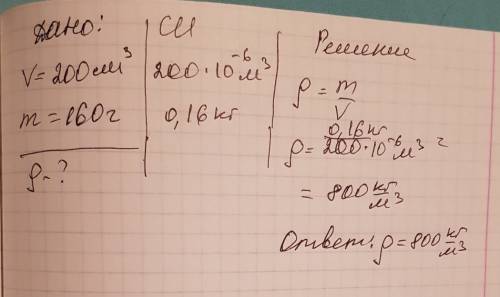 Дано:
V = 200 см³
m = 160 г
ρ - ?
СИ
200·10⁻⁶ м³
0,16 кг
Решение
ρ = m/V
ρ = 0,16 кг / 200·10⁻⁶ м³ =
= 800 кг/м³
Ответ: ρ = 800 кг/м³